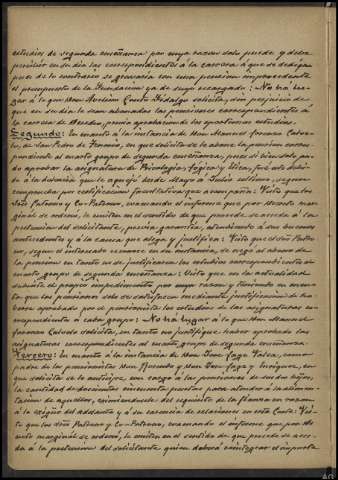 estudios de segunda enseñanza por cuya razon solo puede y debe
percibir en su dia las correspondientes á la carrera á que se dedique
pues de lo contrario se gravaria con una pension improcedente
el presupuesto de la Fundacion ya de suyo recargado: No há lu-
gar á lo que Don Avelino Hidalgo solicita, sin perjuicio de
que en su dia le sean abonadas las pensiones correspondientes á
la carrera de Derecho, previa aprobacion de los oportunos estudios.
Segundo: En cuanto á la instancia de Don Manuel
de San Pedro de en que solicita se le abone la pension corres-
pondiente al cuarto grupo de segunda enseñanza, pues si bien solo pu-
do aprobar la asignatura de Psicologia, Lógica y Ética, fué debi-
do á la dolencia que le aquejó desde Mayo á Julio últimos, segun
comprueba por certificacion facultativa que acompaña: Visto que los
Sres Patrono y Co-Patrono, evacuando el informe que por decreto mar-
ginal se ordenó, lo emiten en el sentido de que procede se acceda á la
peticion del solicitante, previa garantía, atendiendo á sus buenos
antecedentes y á la causa que alega y justifica: Visto que el Sor Patro-
no, segun el interesado en su instancia, se negó al abono de
la pension en tanto no se justificaran los estudios correspondientes al
cuarto grupo de segunda enseñanza: Visto que en la actualidad
subsiste el propio impedimento por cuya razon y teniendo en cuen-
ta que las pensiones solo se satisfacen mediante justificacion de ha-
berse aprobado por el pensionista los estudios de las asignaturas co-
rrespondientes á cada grupo: No há lugar á lo que Don Manuel
solicita, en tanto no justifique haber aprobado las
asignaturas correspondientes al cuarto grupo de segunda enseñanza.
Tercero: En cuanto á la instancia de Don José Lage como
padre de los pensionistas Don Ricardo y Don José Lage y en
que solicita se le anticipe, con cargo á las pensiones de sus dos hijos,
la cantidad de doscientas cincuenta pesetas para atender á la alimen-
tacion de aquellos, eximiéndosele del requisito de la fianza en razon
á lo exiguo del adelanto y á su carencia de relaciones en esta Corte: Vis-
to que los Sres Patrono y Co-Patrono, evacuando el informe que por de-
creto marginal se ordenó, lo emiten en el sentido de que procede se acce-
da á la pretension del solicitante quien deberá reintegrar el importe